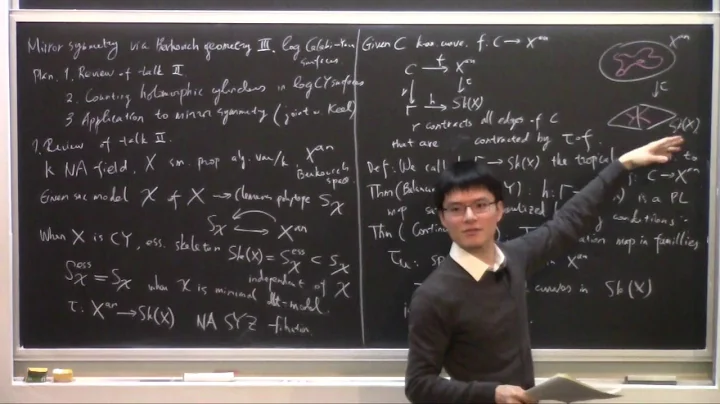 Mirror symmetry via Berkovich geometry III. log Calabi-Yau
surfaces.
Plan. 1. Review of talk II.
2. Counting holomorphic cylinders in log CY surfaces
3 Application to mirror symmetry (joint w. Keel)
1. Review of talk II.
k NA field, X sm. prop alg. var/k. X^an
Berkovich
space
Given snc model 𝒳 of X → Clemens polytope S_𝒳
S_𝒳 X^an
When X is CY, ess. skeleton Sk(X) = S_𝒳^ess ⊂ S_𝒳
independent of 𝒳
S_𝒳^ess = S_𝒳 when 𝒳 is minimal dlt-model.
τ: X^an → Sk(X) NA SYZ fibration.
Given C k an. curve. f: C → X^an
C f→ X^an
r↓ ↓τ
Γ h→ Sk(X)
r contracts all edges of C
that are contracted by τ∘f.
Def: We call h: Γ → Sk(X) the tropical to
f: C → X^an
Thm (Balance CY): h: Γ is a PL
map conditions.
Thm (Contin map in families
in X^an
curves in Sk(X)
X^an
↓τ
Sk(X)